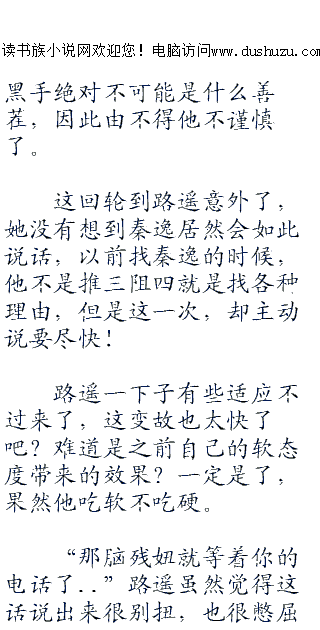 读书族小说网欢迎您！电脑访问www.dushuzu.com
黑手绝对不可能是什么善
茬，因此由不得他不谨慎
了。
这回轮到路遥意外了，
她没有想到秦逸居然会如此
说话，以前找秦逸的时候，
他不是推三阻四就是找各种
理由，但是这一次，却主动
说要尽快！
路遥一下子有些适应不
过来了，这变故也太快了
吧？难道是之前自己的软态
度带来的效果？一定是了，
果然他吃软不吃硬。
“那脑残妞就等着你的
电话了..”路遥虽然觉得这
话说出来很别扭，也很憋屈